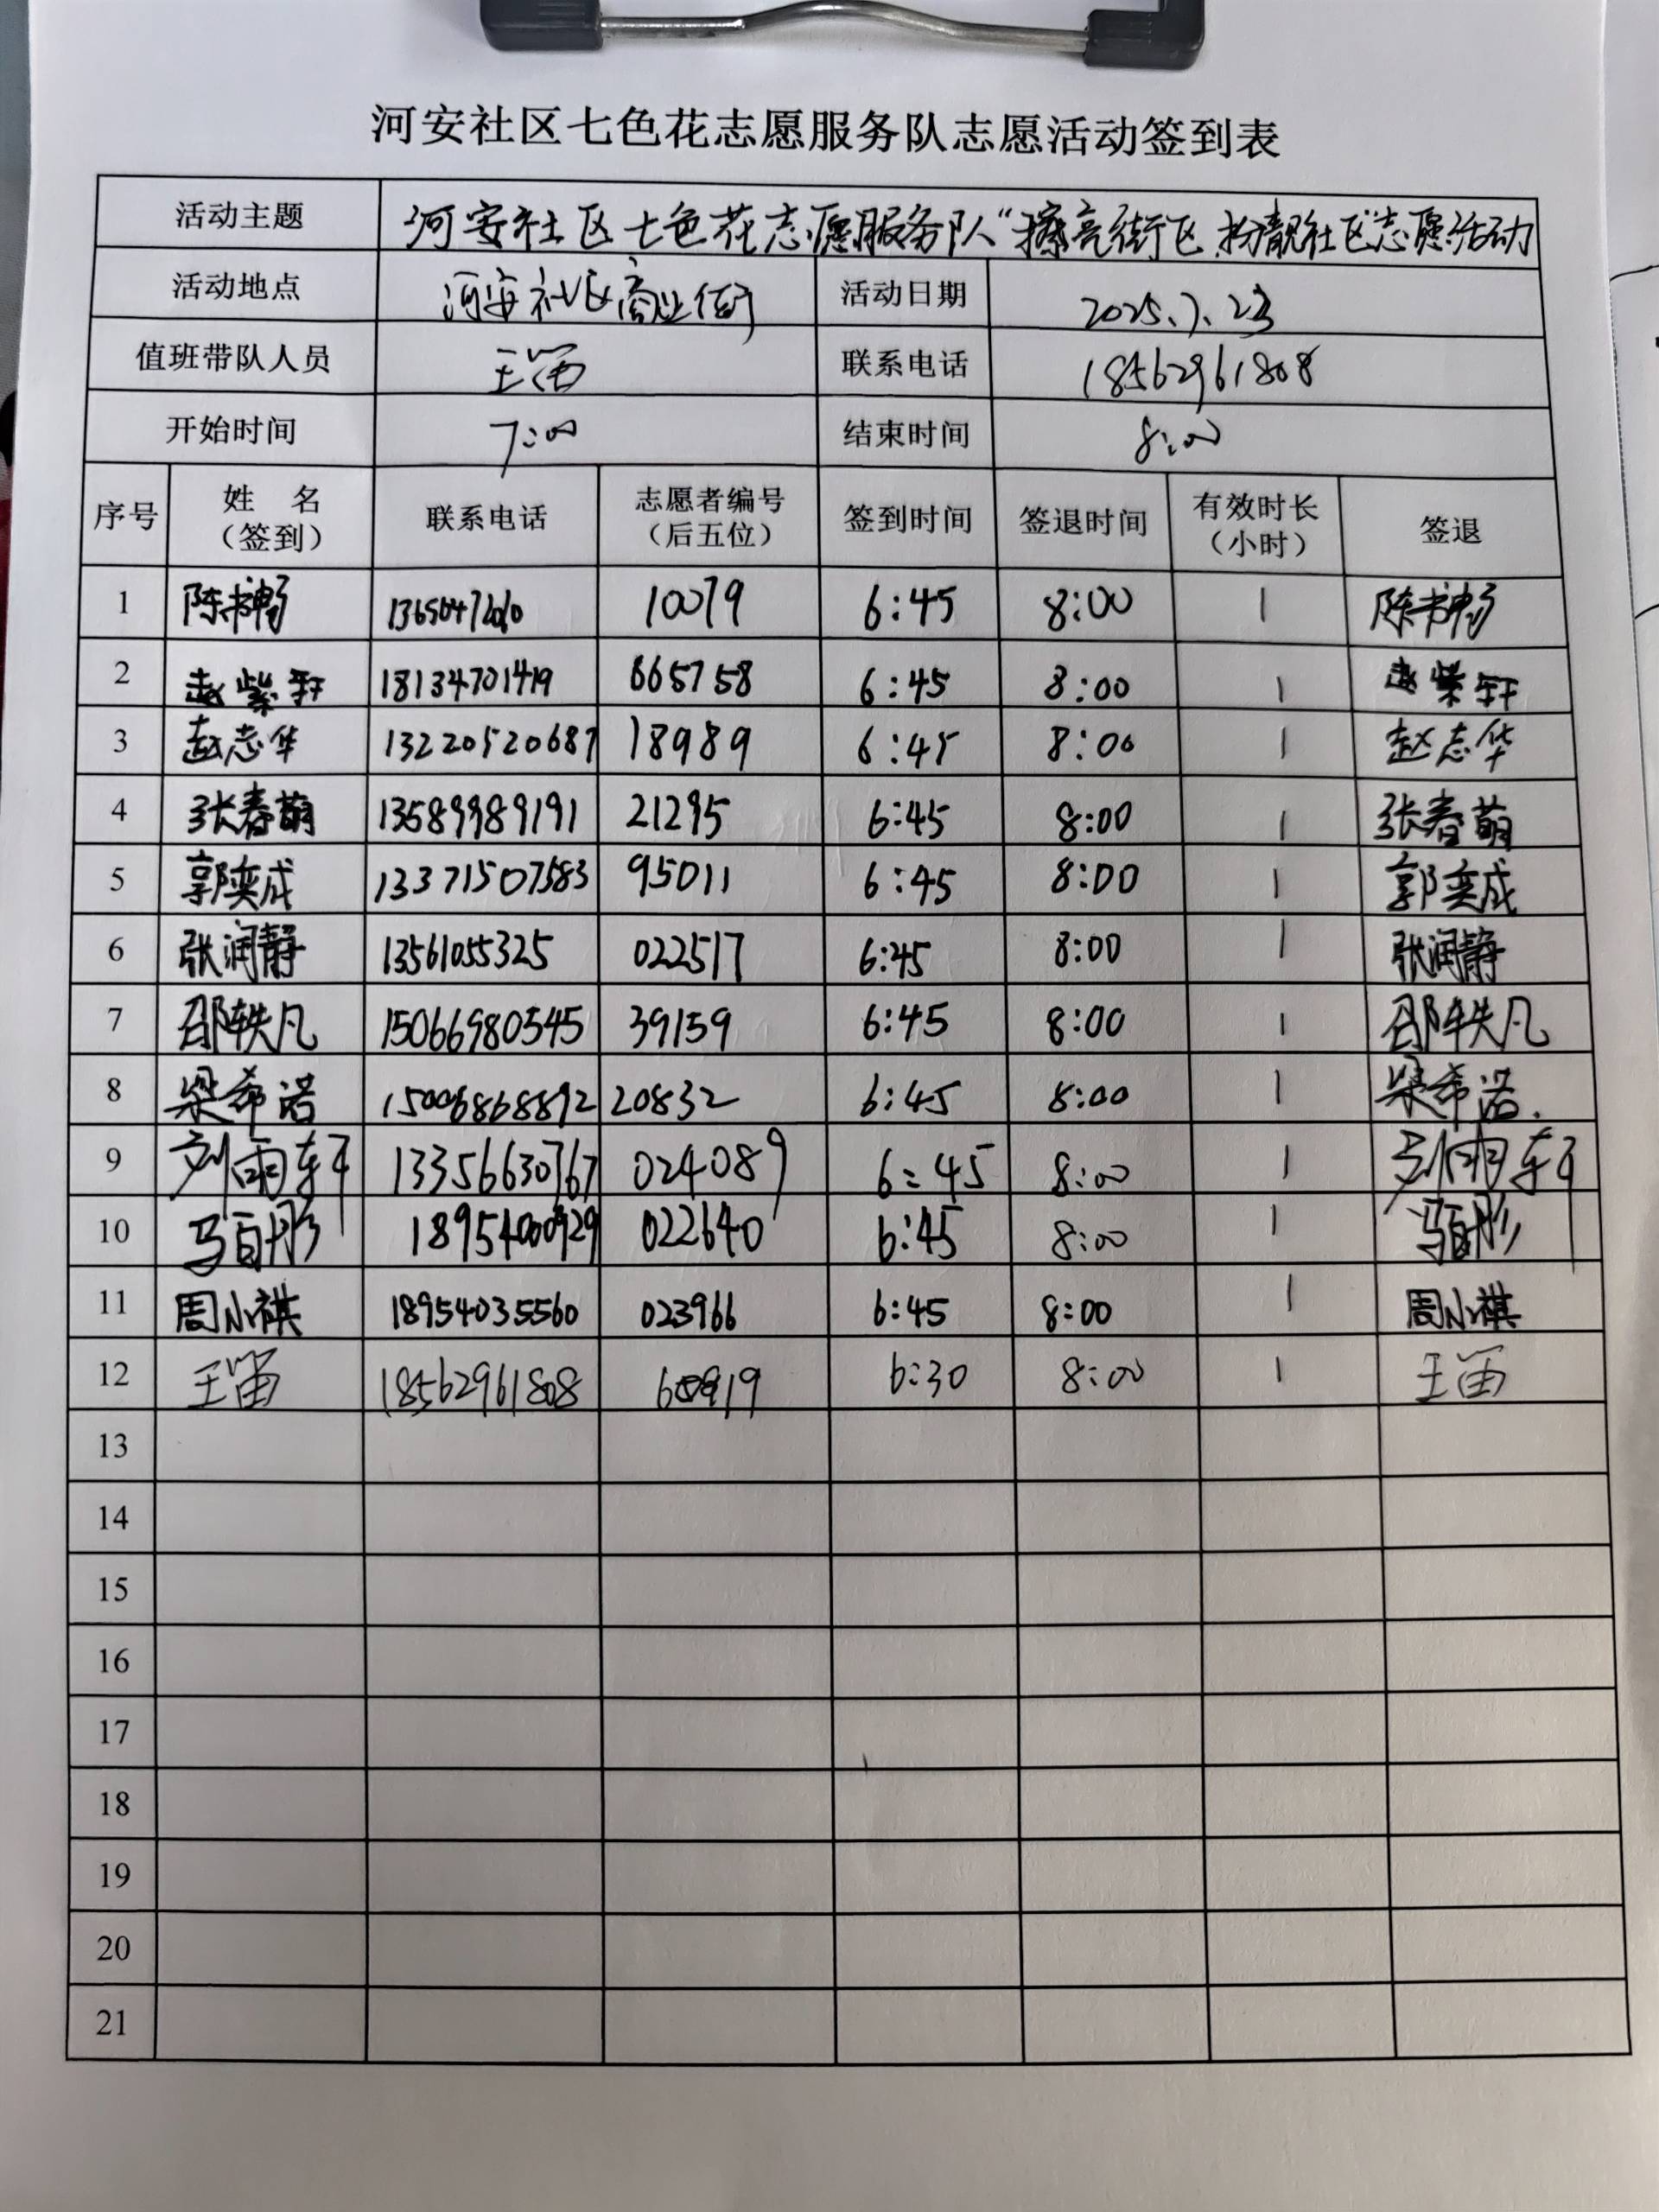 河安社区七色花志愿服务队志愿活动签到表
活动主题 河安社区七色花志愿服务队“擦亮街区,扮靓社区”志愿活动
活动地点 河安社区商业街 活动日期 2025.7.23
值班带队人员 王笛 联系电话 18562961808
开始时间 7:00 结束时间 8:00
序号 姓 名（签到） 联系电话 志愿者编号（后五位） 签到时间 签退时间 有效时长（小时） 签退
1 陈书畅 10079 6:45 8:00 1 陈书畅
2 赵紫轩 18134701419 665758 6:45 8:00 1 赵紫轩
3 赵志华 13220520687 18989 6:45 8:00 1 赵志华
4 张春萌 13589989191 21295 6:45 8:00 1 张春萌
5 郭奕成 13371507583 95011 6:45 8:00 1 郭奕成
6 张润静 13561055325 022517 6:45 8:00 1 张润静
7 邵轶凡 15066980545 39159 6:45 8:00 1 邵轶凡
8 梁希诺 15006868892 20832 6:45 8:00 1 梁希诺.
9 刘雨轩 13356630767 024089 6:45 8:00 1 刘雨轩
10 马百彤 18954000929 022640 6:45 8:00 1 马百彤
11 周小祺 18954035560 023966 6:45 8:00 1 周小祺
12 王笛 18562961808 6:30 8:00 1 王笛
13
14
15
16
17
18
19
20
21